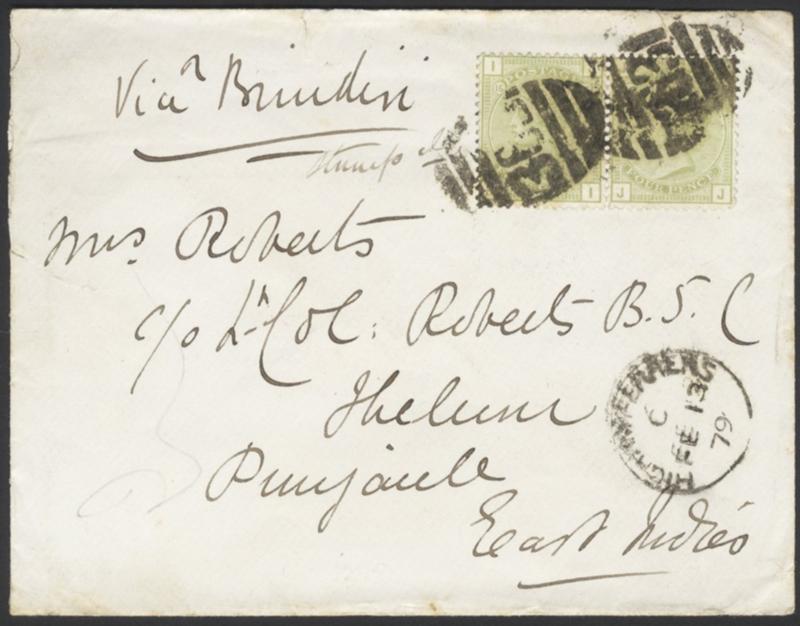 Via Brindisi
POSTAGE
I I
FOUR PENCE
J J
Mrs Roberts
c/o Lt Col: Roberts B.S.C
Jhelum
Punjaule
East Indies
HIGHAM FERRERS
C
FE 13
79